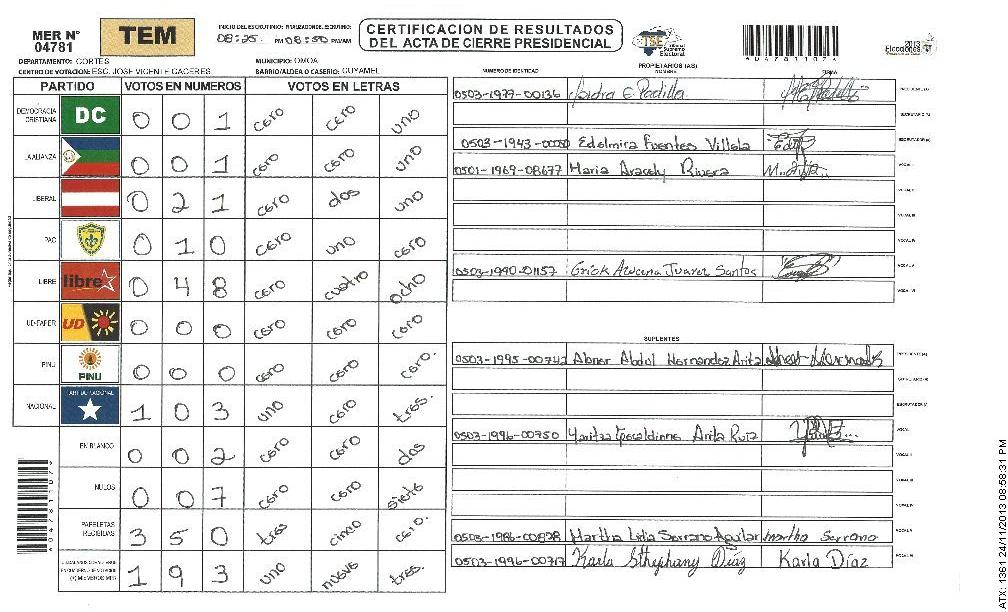 MER N° 04781
TEM
INICIO DEL ESCRUTINIO: FINALIZACION DEL ESCRUTINIO:
08:25 PM 08:50 PM/AM
CERTIFICACION DE RESULTADOS
DEL ACTA DE CIERRE PRESIDENCIAL
TSE Tribunal Supremo Electoral
2013 Elecciones
DEPARTAMENTO: CORTES
MUNICIPIO: OMOA
CENTRO DE VOTACION: ESC. JOSE VICENTE CACERES
BARRIO/ALDEA O CASERIO: CUYAMEL
PARTIDO VOTOS EN NUMEROS VOTOS EN LETRAS
DEMOCRACIA CRISTIANA DC 0 0 1 cero cero uno
LA ALIANZA 0 0 1 cero cero uno
LIBERAL 0 2 1 cero dos uno
PAC 0 1 0 cero uno cero
LIBRE libre 0 4 8 cero cuatro ocho
UD-FAPER UD 0 0 0 cero cero cero
PINU PINU 0 0 0 cero cero cero.
NACIONAL PARTIDO NACIONAL 1 0 3 uno cero tres.
EN BLANCO 0 0 2 cero cero dos
NULOS 0 0 7 cero cero siete
PAPELETAS RECIBIDAS 3 5 0 tres cinco cero.
1 9 3 uno nueve tres.
NUMERO DE IDENTIDAD
PROPIETARIOS (AS)
NOMBRE
FIRMA
0503-1979-00136 Isidra E Padilla
0503-1943-00080 Edelmira Fuentes Villela
0501-1969-08677 Maria Aracely Rivera
0503-1990-01157 Erick Azucena Juarez Santos
SUPLENTES
0503-1995-00742 Abner Abdol Hernandez Arita
0503-1996-00750 Yaritza Geraldinne Arita Ruiz
0503-1986-00828 Martha Lidia Serrano Aguilar martha Serrano
0503-1996-00717 Karla Sthephany Díaz Karla Díaz
ATX: 1361 24/11/2013 08:58:31 PM